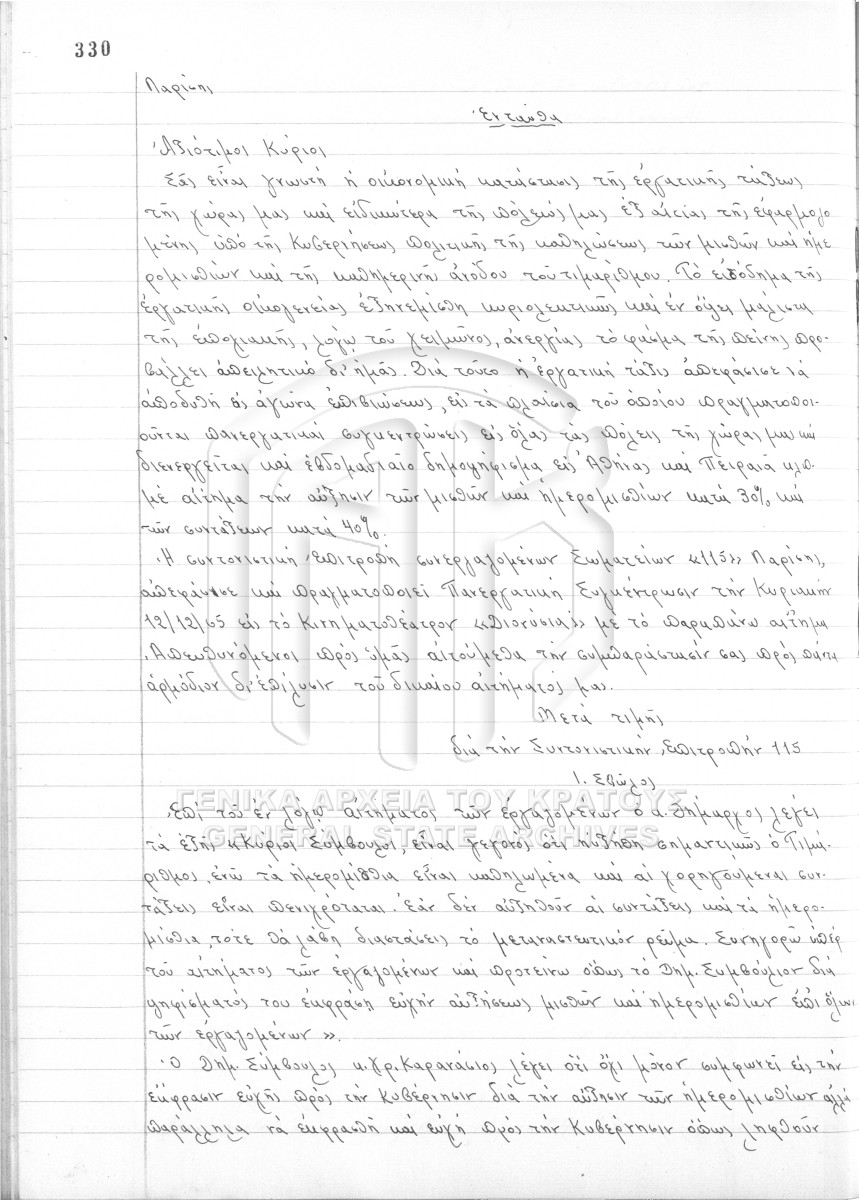 330
Λαρίσης
Ἐνταῦθα
Ἀξιότιμοι Κύριοι
Σᾶς εἶναι γνωστή ἡ οἰκονομική κατάστασις τῆς ἐργατικῆς τάξεως
τῆς χώρας μας καί εἰδικώτερα τῆς πόλεώς μας ἐξ αἰτίας τῆς ἐφαρμοζο
μένης ὑπό τῆς Κυβερνήσεως πολιτικῆς τῆς καθηλώσεως τῶν μισθῶν καί ἡμε
ρομισθίων καί τῆς καθημερινῆς ἀνόδου τοῦ τιμαρίθμου. Τό εἰσόδημα τῆς
ἐργατικῆς οἰκογενείας ἐξηνεμίσθη κυριολεκτικῶς καί ἐν ὄψει μάλιστα
τῆς ἐποχιακῆς, λόγῳ τοῦ χειμῶνος, ἀνεργίας τό φάσμα τῆς πείνης προ-
βάλλει ἀπειλητικό δι' ἡμᾶς. Διά τοῦτο ἡ ἐργατική τάξις ἀπεφάσισε νά
ἀποδυθῆ εἰς ἀγῶνα ἐπιβιώσεως, εἰς τά πλαίσια τοῦ ὁποίου πραγματοποι-
οῦνται πανεργατικαί συγκεντρώσεις εἰς ὅλας τάς πόλεις τῆς χώρας μας καί
διενεργεῖται καί ἑβδομαδιαῖο δημοψήφισμα εἰς Ἀθήνας καί Πειραιᾶ κλπ.
μέ αἴτημα τήν αὔξησιν τῶν μισθῶν καί ἡμερομισθίων κατά 30% καί
τῶν συντάξεων κατά 40%.
Ἡ συντονιστική Ἐπιτροπή συνεργαζομένων Σωματείων «115» Λαρίσης,
ἀπεφάσισε καί πραγματοποιεῖ Πανεργατική Συγκέντρωσιν τήν Κυριακήν
12/12/65 εἰς τό Κινηματοθέατρον «Διονύσια» μέ τό παραπάνω αἴτημα
Ἀπευθυνόμενοι πρός ὑμᾶς αἰτούμεθα τήν συμπαράστασίν σας πρός πάντα
ἁρμόδιον δι' ἐπίλυσιν τοῦ δικαίου αἰτήματός μας.
Μετά τιμῆς
διά τήν Συντονιστικήν Ἐπιτροπήν 115
Ι. Σβῶλος
ΓΕΝΙΚΑ ΑΡΧΕΙΑ ΤΟΥ ΚΡΑΤΟΥΣ
GENERAL STATE ARCHIVES
Ἐπί τοῦ ἐν λόγῳ αἰτήματος τῶν ἐργαζομένων ὁ κ. Δήμαρχος λέγει
τά ἑξῆς «Κύριοι Σύμβουλοι, εἶναι γεγονός ὅτι ηὐξήθη σημαντικῶς ὁ Τιμά-
ριθμος, ἐνῶ τά ἡμερομίσθια εἶναι καθηλωμένα καί αἱ χορηγούμεναι συν-
τάξεις εἶναι πενιχρόταται. Ἐάν δέν αὐξηθοῦν αἱ συντάξεις καί τά ἡμερο-
μίσθια, τότε θά λάβη διαστάσεις τό μεταναστευτικόν ρεῦμα. Συνηγορῶ ὑπέρ
τοῦ αἰτήματος τῶν ἐργαζομένων καί προτείνω ὅπως τό Δημ. Συμβούλιον διά
ψηφίσματος του ἐκφράση εὐχήν αὐξήσεως μισθῶν καί ἡμερομισθίων ἐπί ὅλων
τῶν ἐργαζομένων».
Ὁ Δημ. Σύμβουλος κ. Γρ. Καρανάσιος λέγει ὅτι ὄχι μόνον συμφωνεῖ εἰς τήν
ἔκφρασιν εὐχῆς πρός τήν Κυβέρνησιν διά τήν αὔξησιν τῶν ἡμερομισθίων ἀλλά
παράλληλα νά ἐκφρασθῆ καί εὐχή πρός τήν Κυβέρνησιν ὅπως ληφθοῦν